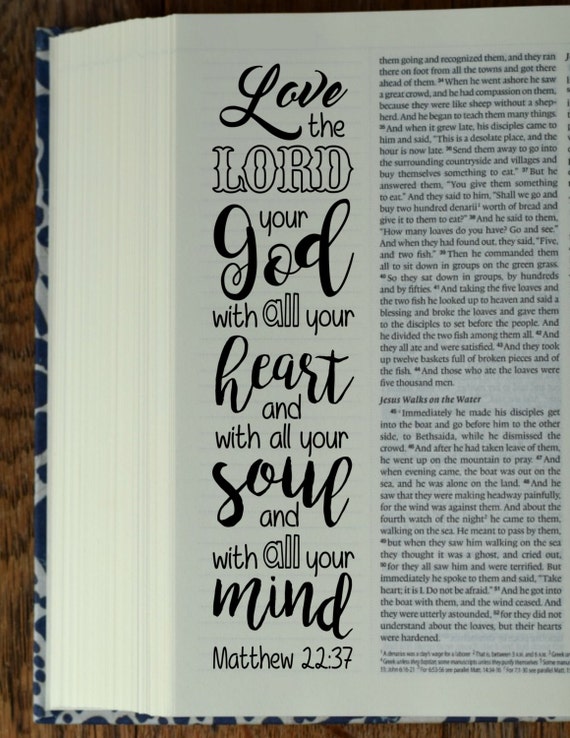 Love
the
LORD
your
God
with all your
heart
and
with all your
soul
and
with all your
mind
Matthew 22:37
them going and recognized them, and they ran
there on foot from all the towns and got there
ahead of them. 34 When he went ashore he saw
a great crowd, and he had compassion on them,
because they were like sheep without a shep-
herd. And he began to teach them many things.
35 And when it grew late, his disciples came to
him and said, "This is a desolate place, and the
hour is now late. 36 Send them away to go into
the surrounding countryside and villages and
buy themselves something to eat." 37 But he
answered them, "You give them something
to eat." And they said to him, "Shall we go and
buy two hundred denarii¹ worth of bread and
give it to them to eat?" 38 And he said to them,
"How many loaves do you have? Go and see."
And when they had found out, they said, "Five,
and two fish." 39 Then he commanded them
all to sit down in groups on the green grass.
40 So they sat down in groups, by hundreds
and by fifties. 41 And taking the five loaves and
the two fish he looked up to heaven and said a
blessing and broke the loaves and gave them
to the disciples to set before the people. And
he divided the two fish among them all. 42 And
they all ate and were satisfied. 43 And they took
up twelve baskets full of broken pieces and of
the fish. 44 And those who ate the loaves were
five thousand men.
Jesus Walks on the Water
45 Immediately he made his disciples get
into the boat and go before him to the other
side, to Bethsaida, while he dismissed the
crowd. 46 And after he had taken leave of them,
he went up on the mountain to pray. 47 And
when evening came, the boat was out on the
sea, and he was alone on the land. 48 And he
saw that they were making headway painfully,
for the wind was against them. And about the
fourth watch of the night² he came to them,
walking on the sea. He meant to pass by them,
49 but when they saw him walking on the sea
they thought it was a ghost, and cried out,
50 for they all saw him and were terrified. But
immediately he spoke to them and said, "Take
heart; it is I. Do not be afraid." 51 And he got into
the boat with them, and the wind ceased. And
they were utterly astounded, 52 for they did not
understand about the loaves, but their hearts
were hardened.
¹ A denarius was a day's wage for a laborer ² That is, between 3 A.M. and 6 A.M.